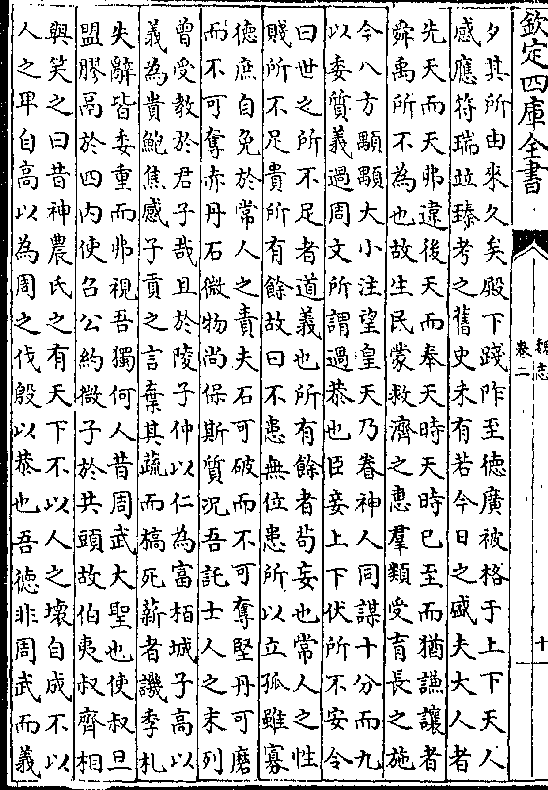 欽定四庫全書
魏志
卷二
十
夕其所由來久矣殿下踐阼至德廣被格于上下天人
感應符瑞竝臻考之舊史未有若今日之盛夫大人者
先天而天弗違後天而奉天時天時已至而猶謙讓者
舜禹所不為也故生民蒙救濟之惠羣類受育長之施
今八方顒顒大小注望皇天乃眷神人同謀十分而九
以委質義過周文所謂過恭也臣妾上下伏所不安令
曰世之所不足者道義也所有餘者苟妄也常人之性
賤所不足貴所有餘故曰不患無位患所以立孤雖寡
德庶自免於常人之責夫石可破而不可奪堅丹可磨
而不可奪赤丹石微物尚保斯質況吾託士人之末列
曾受教於君子哉且於陵子仲以仁為富栢城子高以
義為貴鮑焦感子貢之言棄其蔬而槁死薪者譏季札
失辭皆委重而弗視吾獨何人昔周武大聖也使叔旦
盟膠鬲於四內使召公約微子於共頭故伯夷叔齊相
與笑之曰昔神農氏之有天下不以人之壞自成不以
人之卑自高以為周之伐殷以恭也吾德非周武而義